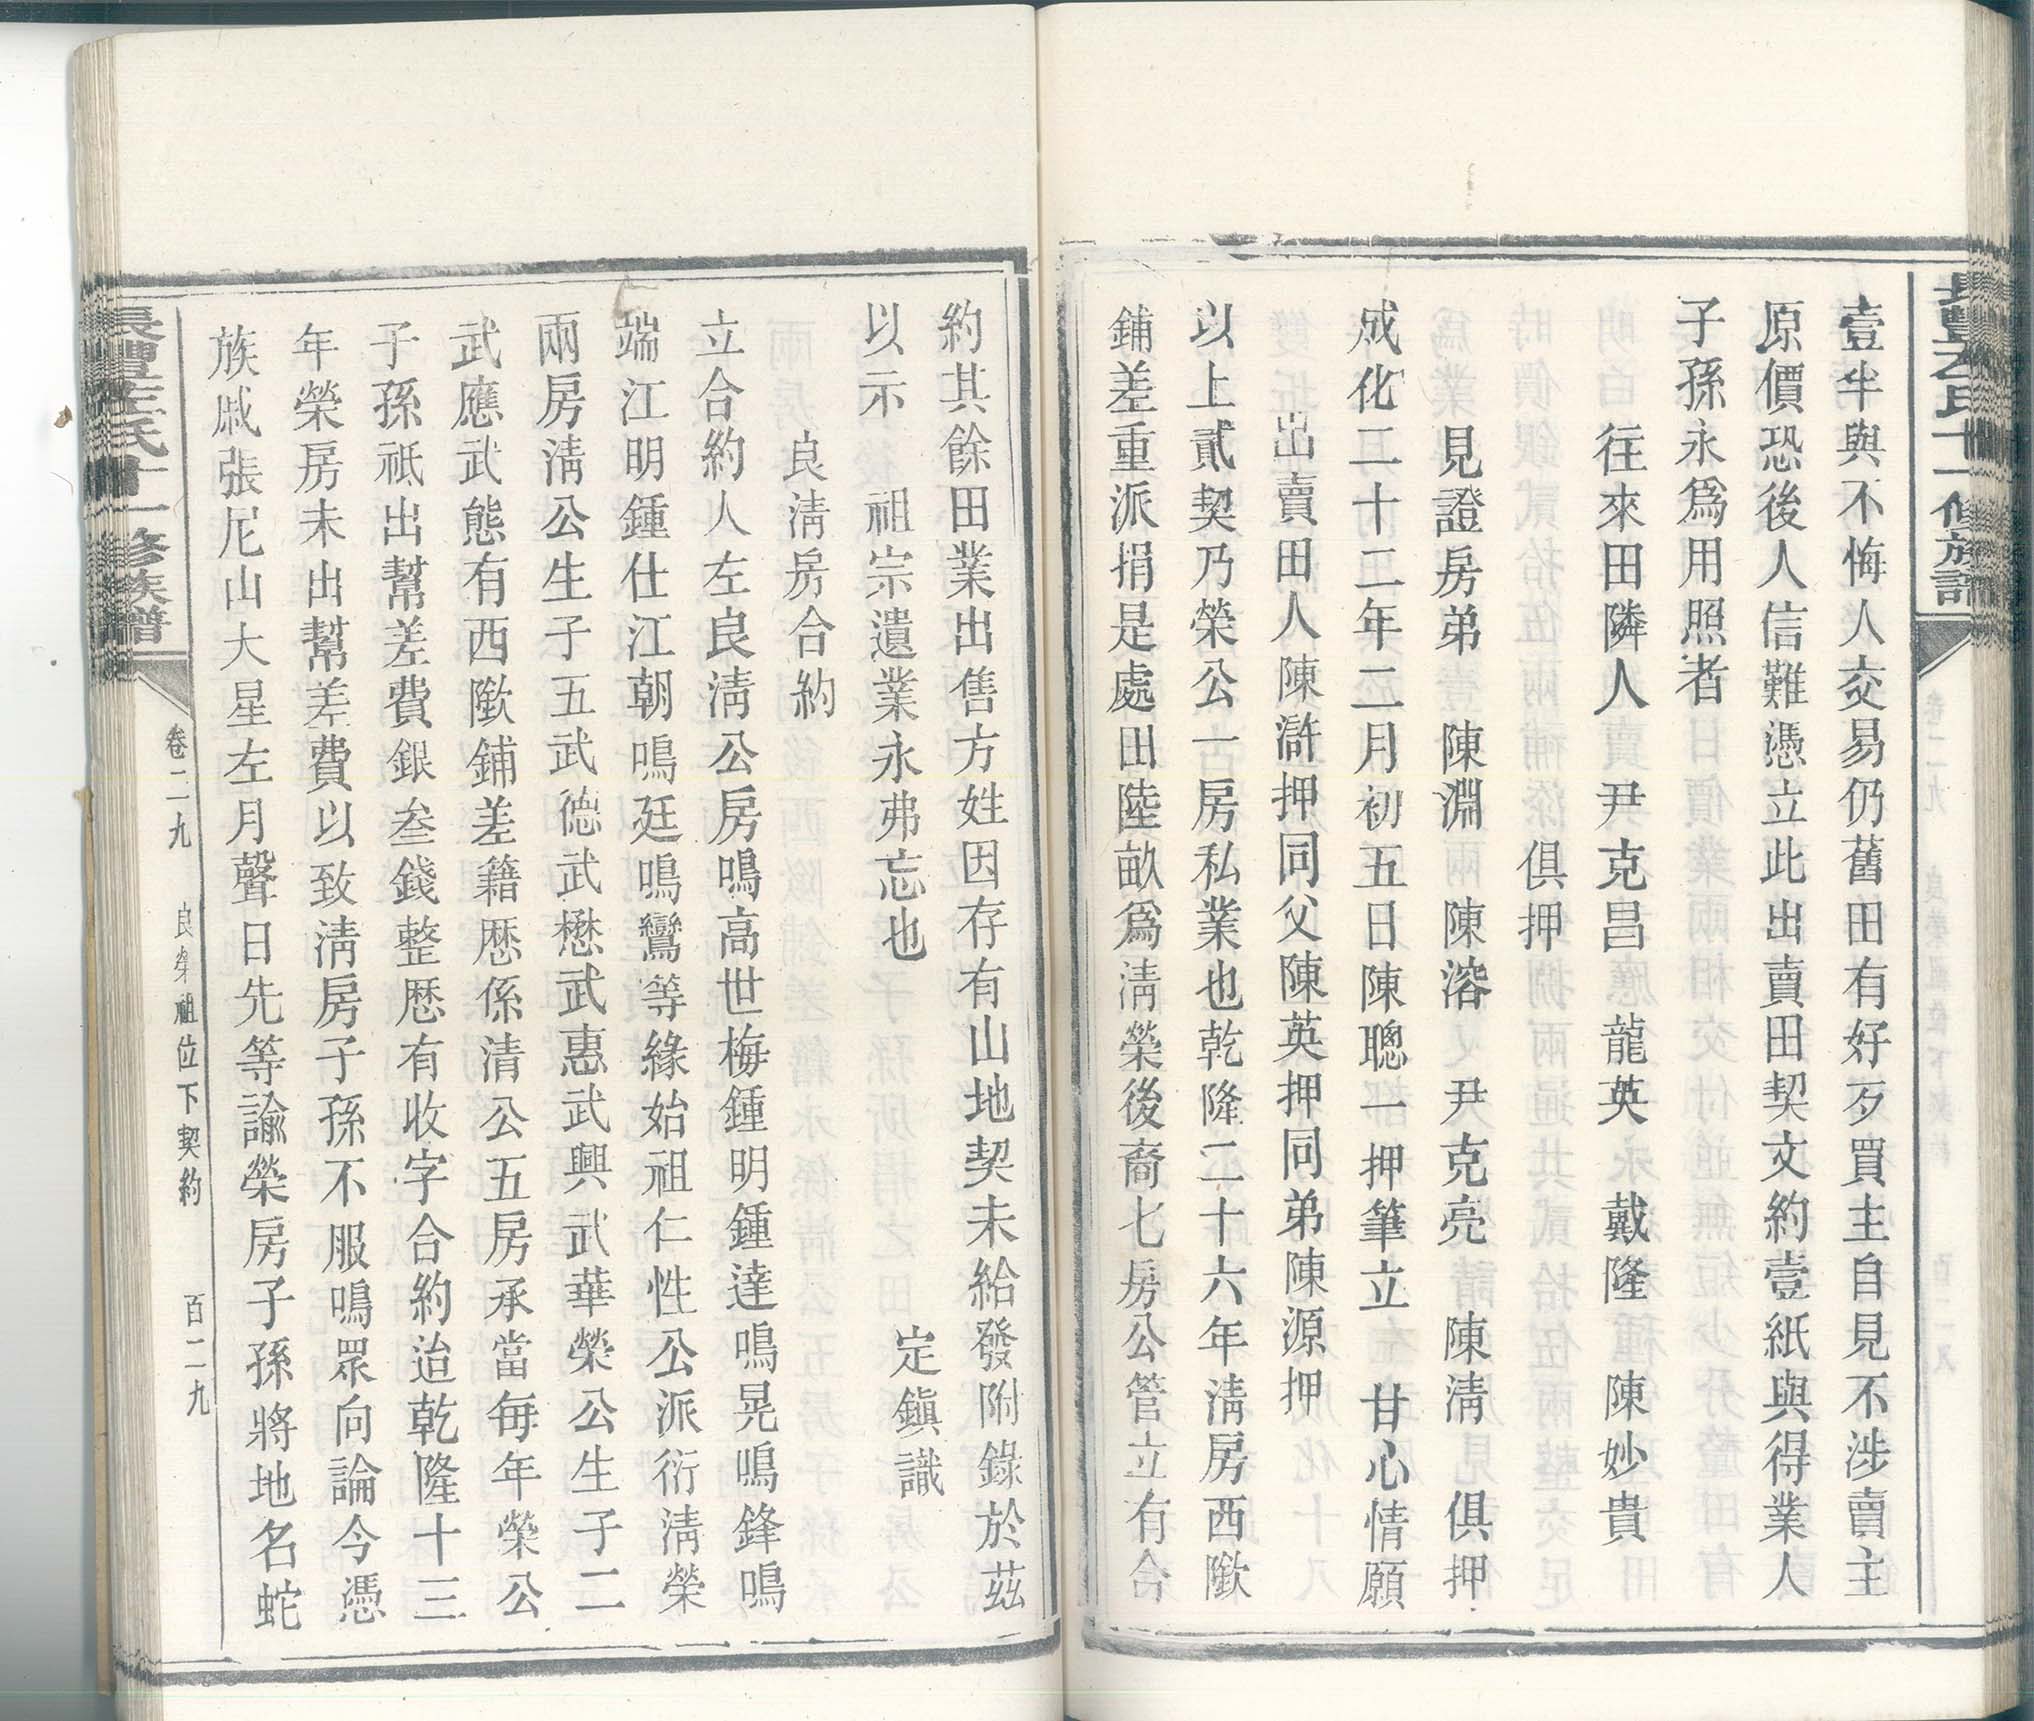 壹半與不悔人交易仍舊田有好歹買主自見不涉賣主
原價恐後人信難憑立此出賣田契文約壹紙與得業人
子孫永爲用照者
往來田隣人 尹克昌 龍英 戴隆 陳妙貴
俱押
見證房弟 陳淵 陳溶 尹克亮 陳淸 俱押
成化二十二年二月初五日陳聰一押筆立 甘心情願
出賣田人陳滸押同父陳英押同弟陳源押
以上貳契乃榮公一房私業也乾隆二十六年淸房西歐
鋪差重派捐是處田陸畝爲淸榮後裔七房公管立有合
約其餘田業出售方姓因存有山地契未給發附錄於茲
以示 祖宗遺業永弗忘也 定鎭識
良淸房合約
立合約人左良淸公房鳴高世梅鍾明鍾達鳴晃鳴鋒鳴
端江明鍾仕江朝鳴廷鳴鸞等緣始祖仁性公派衍淸榮
兩房淸公生子五武德武懋武惠武興武華榮公生子二
武應武態有西歐鋪差籍歷係清公五房承當每年榮公
子孫祗出幫差費銀叁錢整歷有收字合約迨乾隆十三
年榮房未出幫差費以致淸房子孫不服鳴眾向論今憑
族戚張尼山大星左月聲日先等諭榮房子孫將地名蛇
長豐左氏十一修族譜
卷二九 良榮祖位下契約 百二九